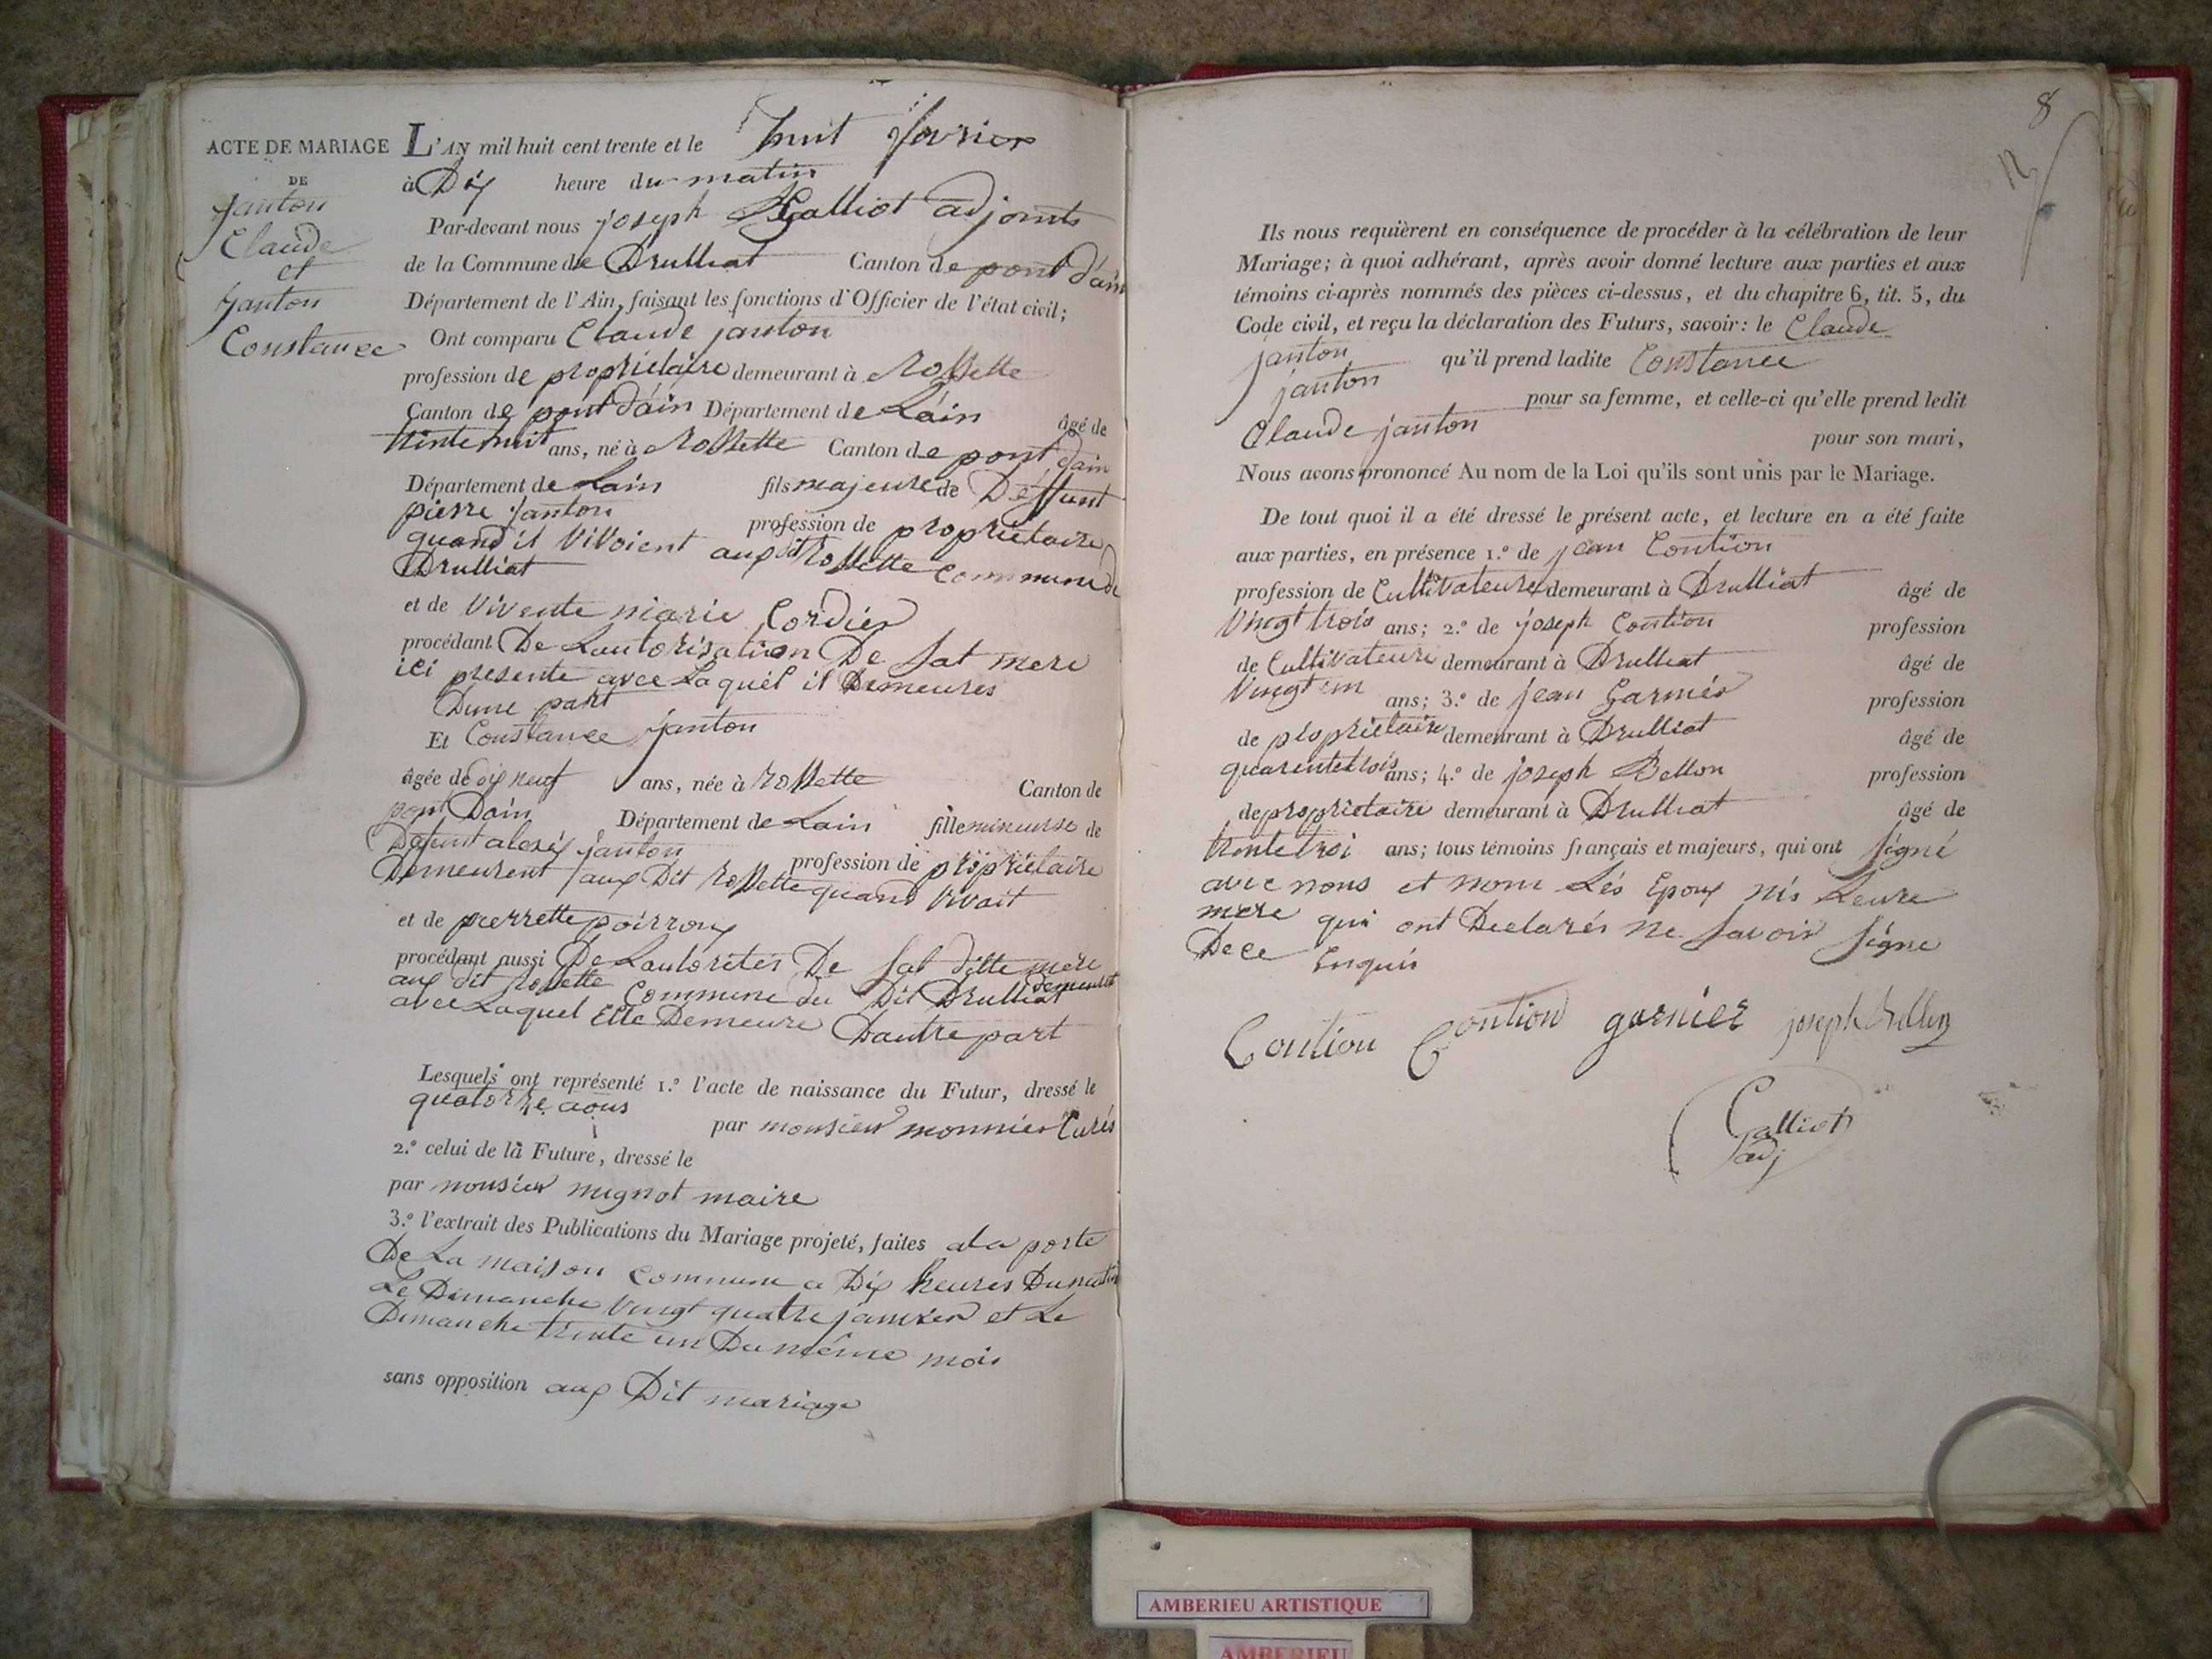 ACTE DE MARIAGE
DE
Janton
Claude
et
Janton
Constance
L'AN mil huit cent trente et le huit fevrier
à Dix heure du matin
Par-devant nous joseph Galliot adjoints
de la Commune de Drulliat Canton de pont d'ain
Département de l'Ain, faisant les fonctions d'Officier de l'état civil;
Ont comparu Claude janton
profession de propriétaire demeurant à Rossette
Canton de pont d'ain Département de Lain âgé de
trinte huit ans, né à Rossette Canton de pont dain
Département de Lain fils majeure de Deffunt
pierre janton profession de propriétaire
quand il Vivoient aux dit Rossette Commune de
Drulliat
et de Vivente marie Cordier
procédant De Lautorisation De Sat mere
ici presente avec Laquel il Demeures
Dune part
Et Constance janton
âgée de dix neuf ans, née à Rossette Canton de
pont Dain Département de Lain fille mineurse de
Defunt alexix janton profession de propriétaire
Demeurent aux Dit Rossette quand Vivait
et de pierrette poirroux
procédant aussi De Lautorites De Sat ditte mere demeurent
aux dit Rossette Commune du Dit Drulliat
avec Laquel Elle Demeure Dautre part
Lesquels ont représenté 1.º l'acte de naissance du Futur, dressé le
quatorze aous par monsieur monnier Curés
2.º celui de la Future, dressé le
par monsieur mignot maire
3.º l'extrait des Publications du Mariage projeté, faites ala porte
De La maison Commune a Dix heures Du matin
Le Dimanche Vingt quatre janvier et Le
Dimanche trente un Du même mois
sans opposition aux Dit mariage
8
Ils nous requièrent en conséquence de procéder à la célébration de leur
Mariage; à quoi adhérant, après avoir donné lecture aux parties et aux
témoins ci-après nommés des pièces ci-dessus, et du chapitre 6, tit. 5, du
Code civil, et reçu la déclaration des Futurs, savoir: le Claude
janton qu'il prend ladite Constance
janton pour sa femme, et celle-ci qu'elle prend ledit
Claude janton pour son mari,
Nous avons prononcé Au nom de la Loi qu'ils sont unis par le Mariage.
De tout quoi il a été dressé le présent acte, et lecture en a été faite
aux parties, en présence 1.º de jean Contion
profession de Cultivateure demeurant à Drulliat âgé de
Vingt trois ans; 2.º de joseph Contion profession
de Cultivateure demeurant à Drulliat âgé de
Vingt un ans; 3.º de jean Garnier profession
de propriétaire demeurant à Drulliat âgé de
quarente trois ans; 4.º de joseph Bellon profession
de propriétaire demeurant à Drulliat âgé de
trente troi ans; tous témoins français et majeurs, qui ont signé
avec nous et nom Lés Epoux nis Leure
mere qui ont Declarés ne Savoir Signe
De ce Enquis
Contion Contion garnier joseph Bellon
Galliot
adj
AMBERIEU ARTISTIQUE
AMBERIEU